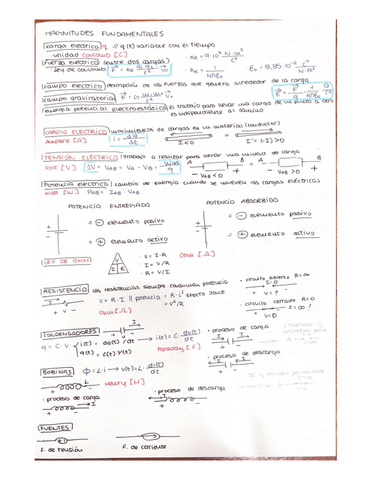 MAGNITUDES FUNDAMENTALES
carga electrica q // q(t) variable con el tiempo
unidad coulomb [C]
Fuerza electrica (entre dos cargas)
Ley de coulomb
campo electrico descripción de las fuerzas que genera alrededor de la carga
campo gravitatorio
energia potencial electroestática el trabajo para llevar una carga de un punto a otro
es independiente al camino
CORRIENTE ELECTRICA movimiento de cargas en un material (conductor)
Ampere [A]
I<0
I'=(-I)>0
TENSIÓN ELECTRICA trabajo a realizar para llevar una unidad de carga
Volt [V]
VAB<0
VBA>0
Potencia electrica cambio de energia cuando se mueven las cargas eléctricas
Watt [W] PAB = IAB · VAB
POTENCIA ENTREGADA POTENCIA ABSORBIDA
= ⊖ elemento pasivo = ⊕ elemento pasivo
= ⊕ elemento activo = ⊖ elemento activo
LEY DE OHM Ohm [Ω]
V I R
· V = I·R
· I = V/R
· R = V/I
RESISTENCIA las resistencias siempre consumen potencia
V = R·I // potencia = R·I² Efecto Joule
= V²/R
Ohm [Ω]
· circuito abierto R=∞
I=0
V=?
· circuito cerrado R=0
I=∞?
V=0
CONDENSADORES
q = C·V
i(t) = dq(t)/dt → i(t) = C·dv(t)/dt
q(t) = C(t)·V(t)
Faraday [F]
· proceso de carga
· proceso de descarga
BOBINAS Φ = L·i → v(t) = L·di(t)/dt
Henry [H]
· proceso de carga
· proceso de descarga
FUENTES
F. de tensión
F. de corriente